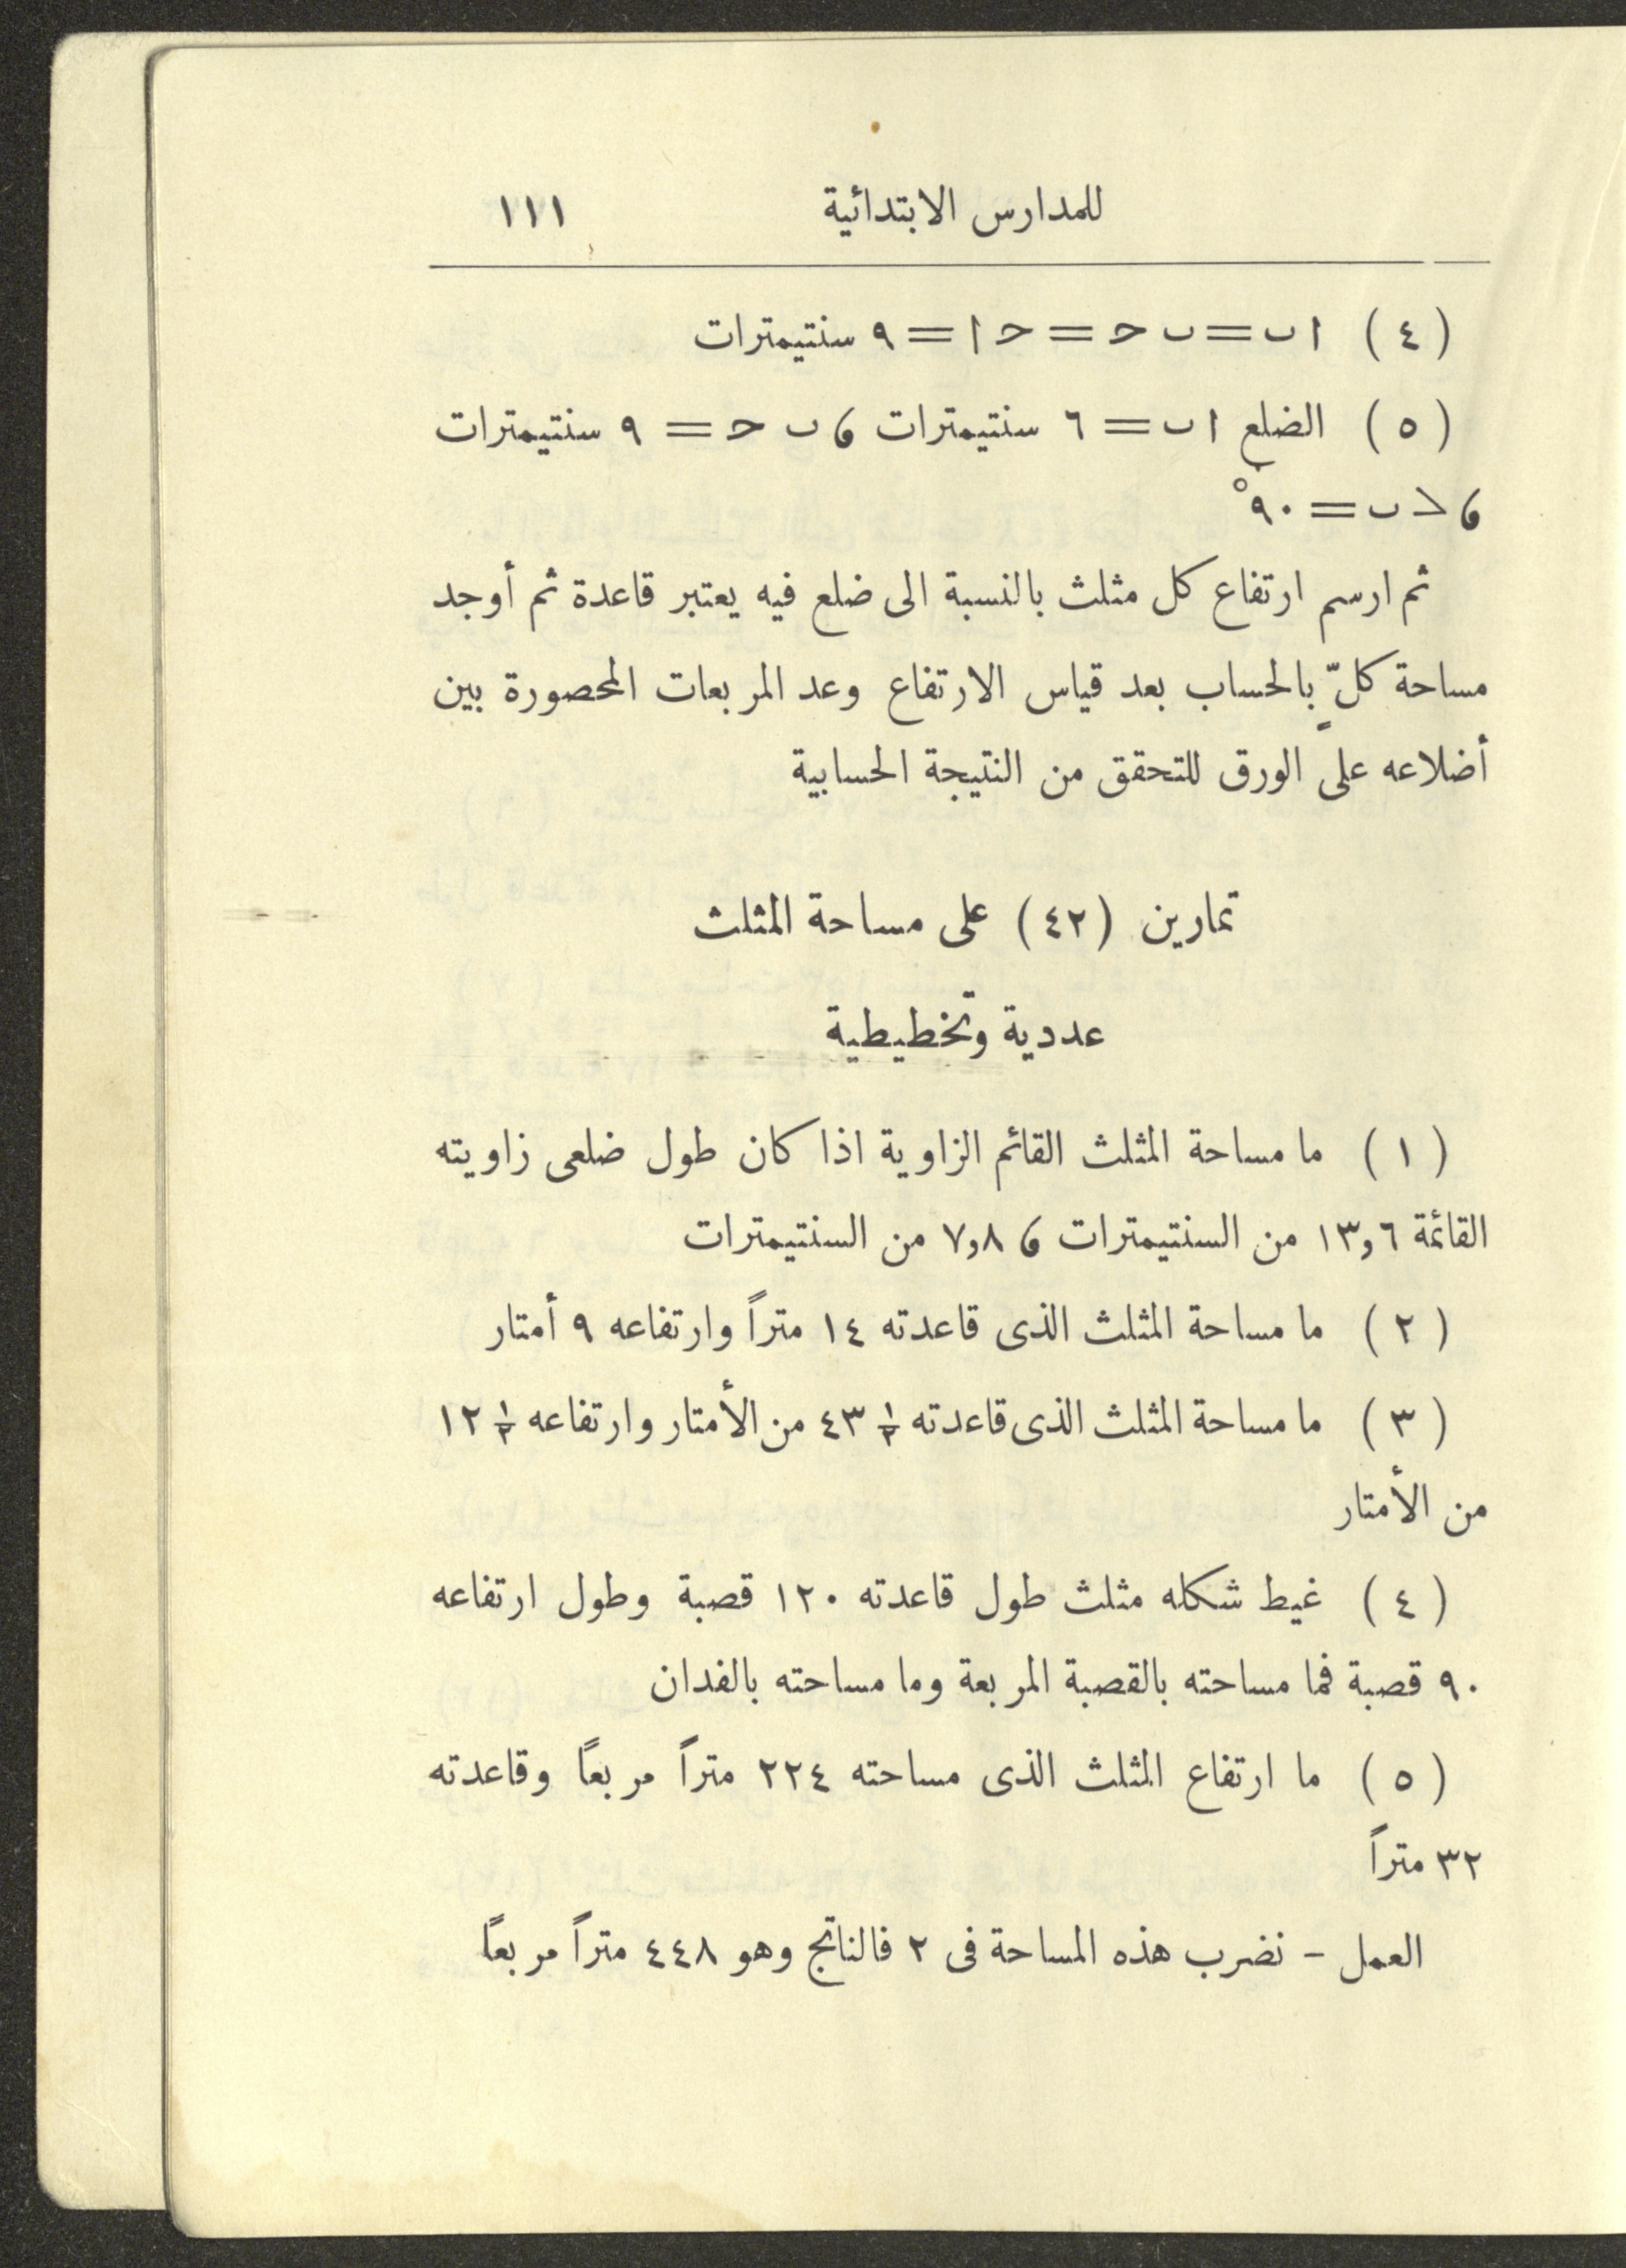 للمدارس الابتدائية ١١١
(٤) ا ب = ب ح = ح ا = ٩ سنتيمترات
(٥) الضلع ا ب = ٦ سنتيمترات ، ب ح = ٩ سنتيمترات
، > ب = ٩٠°
ثم ارسم ارتفاع كل مثلث بالنسبة الى ضلع فيه يعتبر قاعدة ثم أوجد
مساحة كلٍّ بالحساب بعد قياس الارتفاع وعد المربعات المحصورة بين
أضلاعه على الورق للتحقق من النتيجة الحسابية
تمارين (٤٢) على مساحة المثلث
عددية وتخطيطية
(١) ما مساحة المثلث القائم الزاوية اذا كان طول ضلعى زاويته
القائمة ١٣٫٦ من السنتيمترات ، ٧٫٨ من السنتيمترات
(٢) ما مساحة المثلث الذى قاعدته ١٤ متراً وارتفاعه ٩ أمتار
(٣) ما مساحة المثلث الذى قاعدته ٤٣ ١/٢ من الأمتار وارتفاعه ١٢ ١/٢
من الأمتار
(٤) غيط شكله مثلث طول قاعدته ١٢٠ قصبة وطول ارتفاعه
٩٠ قصبة فما مساحته بالقصبة المربعة وما مساحته بالفدان
(٥) ما ارتفاع المثلث الذى مساحته ٢٢٤ متراً مربعاً وقاعدته
٣٢ متراً
العمل - نضرب هذه المساحة فى ٢ فالناتج وهو ٤٤٨ متراً مربعاً